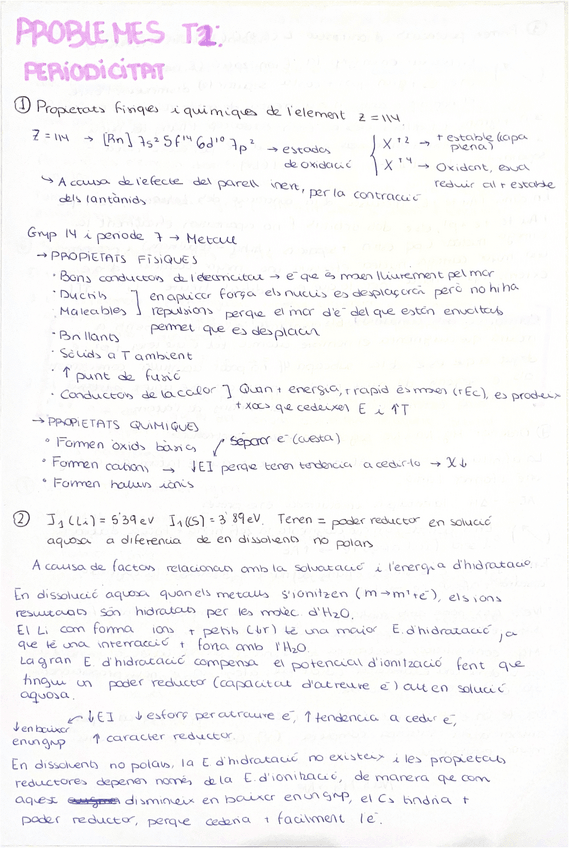 PROBLEMES T2:
PERIODICITAT
① Propietats físiques i químiques de l'element Z=114.
Z=114 → [Rn] 7s² 5f¹⁴ 6d¹⁰ 7p² → estados de oxidació { X⁺² → + estable (capa plena)
X⁺⁴ → Oxidant, es va reduir al + estable
↳ A causa de l'efecte del parell inert, per la contracció
dels lantànids
Grup 14 i període 7 → Metall
→ PROPIETATS FÍSIQUES
· Bons conductors de l'electricitat → e⁻ que es mouen lliurement pel mar
· Dúctils
· Maleables ] en aplicar força els nuclis es desplaçaran però no hi ha
repulsions perque el mar d'e⁻ del que estàn envoltats
permet que es desplacin
· Brillants
· Sòlids a T ambient
· ↑ punt de fusió
· Conductors de la calor ] Quan + energia, + rapid es mouen (↑Ec), es produeix
+ xocs que cedeixen E i ↑T
→ PROPIETATS QUÍMIQUES
° Formen òxids bàsics
separar e⁻ (costa)
° Formen cations → ↓EI perque tenen tendència a cedir-lo → X↓
° Formen halurs iònis
② I₁(Li) = 5'39 eV I₁(CS) = 3'89 eV. Tenen = poder reductor en solució
aquosa a diferencia de en dissolvents no polars
A causa de factors relacionats amb la solvatació i l'energia d'hidratació.
En dissolució aquosa quan els metalls s'ionitzen (m→m⁺+e⁻), els ions
resultants són hidratats per les molèc. d'H₂O.
El Li com forma ions + petits (↓r) té una major E. d'hidratació, ja
que té una interracció + forta amb l'H₂O.
La gran E d'hidratació compensa el potencial d'ionització fent que
tingui un poder reductor (capacitat d'atreure e⁻) alt en solució
aquosa.
↓ en baixar en un grup
↓EI ↓ esforç per atraure e⁻, ↑ tendencia a cedir e⁻,
↑ caracter reductor.
En dissolvents no polars, la E d'hidratació no existeix i les propietats
reductores depenen només de la E. d'ionització, de manera que com
aquest disminueix en baixar en un grup, el Cs tindria +
poder reductor, perque cediria + facilment l'e⁻.